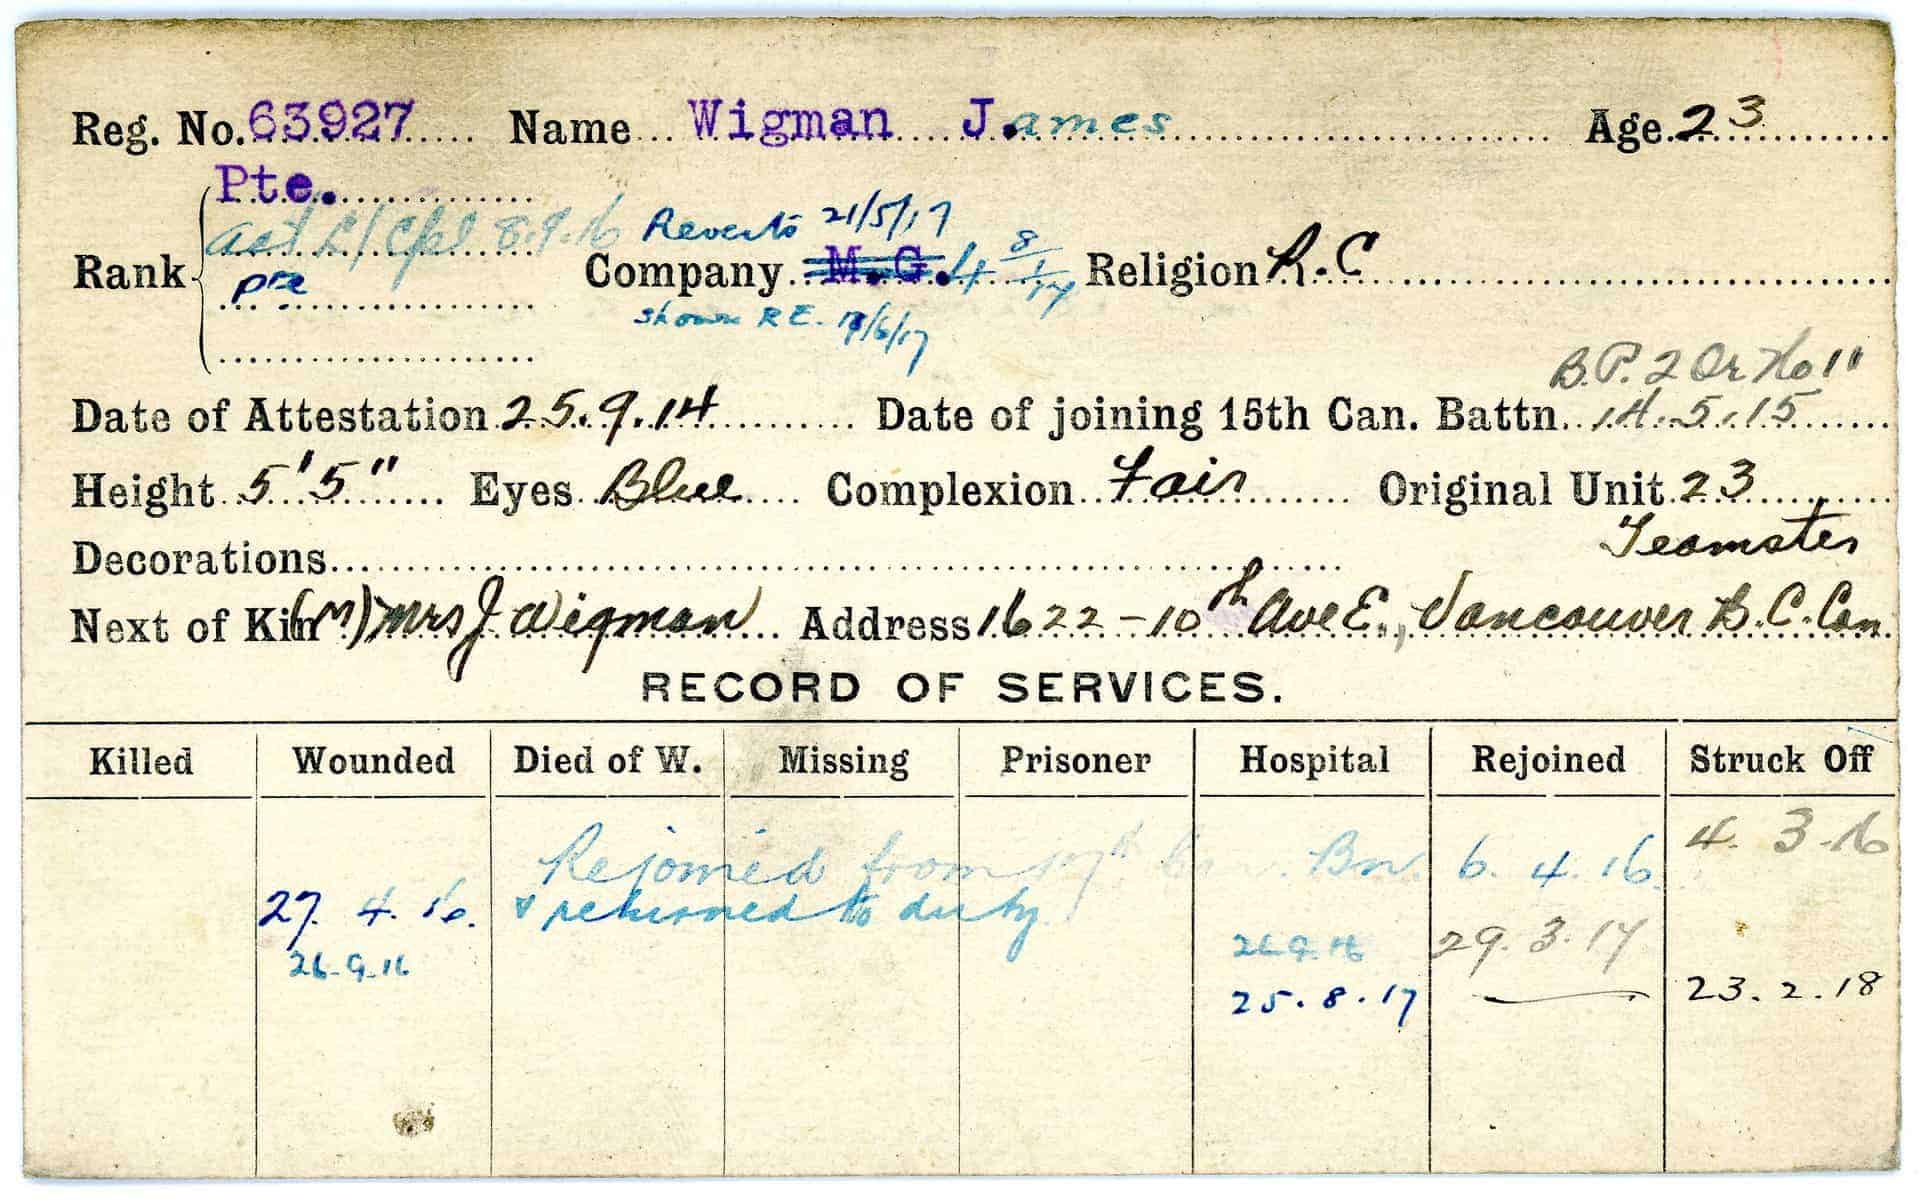 Reg. No. 63927 Name Wigman J.ames Age 23
Pte.
Act L/Cpl 8.9.16 Reverts 21/5/17
Rank Company M.G. 4 8/1/17 Religion R.C
pte
shown R.E. /6/17
B.P. 2 Or No 11
Date of Attestation 25.9.14 Date of joining 15th Can. Battn. 14.5.15
Height 5'5" Eyes Blue Complexion Fair Original Unit 23
Decorations Teamster
Next of Kin (M) Mrs J Wigman Address 1622-10th Ave E., Vancouver B.C. Can.
RECORD OF SERVICES.
Killed Wounded Died of W. Missing Prisoner Hospital Rejoined Struck Off
4.3.16
Rejoined from 17th Bn. 6.4.16
27.4.16. & returned to duty
26.9.16 26.9.16 29.3.17
25.8.17 — 23.2.18